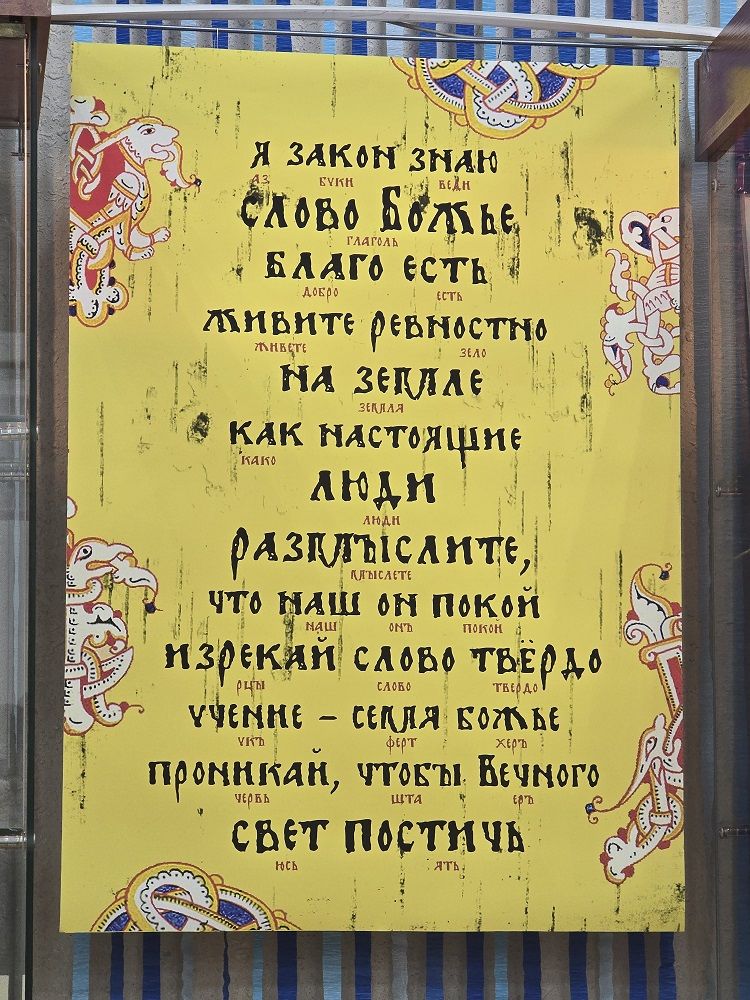 Я ЗАКОН ЗНАЮ
АЗ БУКИ ВЕДИ
СЛОВО БОЖЬЕ
ГЛАГОЛЬ
БЛАГО ЕСТЬ
ДОБРО ЕСТЬ
ЖИВИТЕ РЕВНОСТНО
ЖИВЕТЕ ЗЕЛО
НА ЗЕМЛЕ
ЗЕМЛЯ
КАК НАСТОЯЩИЕ
КАКО
ЛЮДИ
ЛЮДИ
РАЗМЫСЛИТЕ,
МЫСЛЕТЕ
ЧТО НАШ ОН ПОКОЙ
НАШ ОНЪ ПОКОЙ
ИЗРЕКАЙ СЛОВО ТВЁРДО
РЦЫ СЛОВО ТВЕРДО
УЧЕНИЕ – СЕМЯ БОЖЬЕ
УКЪ ФЕРТ ХЕРЪ
ПРОНИКАЙ, ЧТОБЫ ВЕЧНОГО
ЧЕРВЬ ШТА ЕРЪ
СВЕТ ПОСТИЧЬ
ЮСЬ ЯТЬ